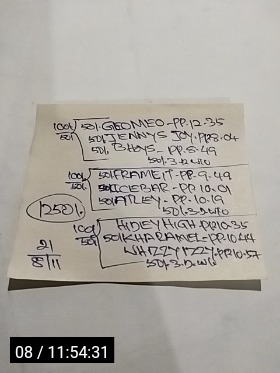 100/ 50/. GEOMEO-PP.12.35
50/ 50/. JENNYS JOY.PP8.04
50/. BHYS-PP.8.49
50/.3.D.W10
100/ 50/FRAMEIT-PP.9.49
50/. 50/ICEBAR-PP10.01
50/ATLEY-PP.10.19
50/.3.D.W10
1250/.
100/ HIDEY HIGH-PP10.35
50/ 50/KHARAMEL-PP10.44
WHIZZY IZZY.PP10.57
50/.3.D.W10
21
8/11
08 / 11:54:31